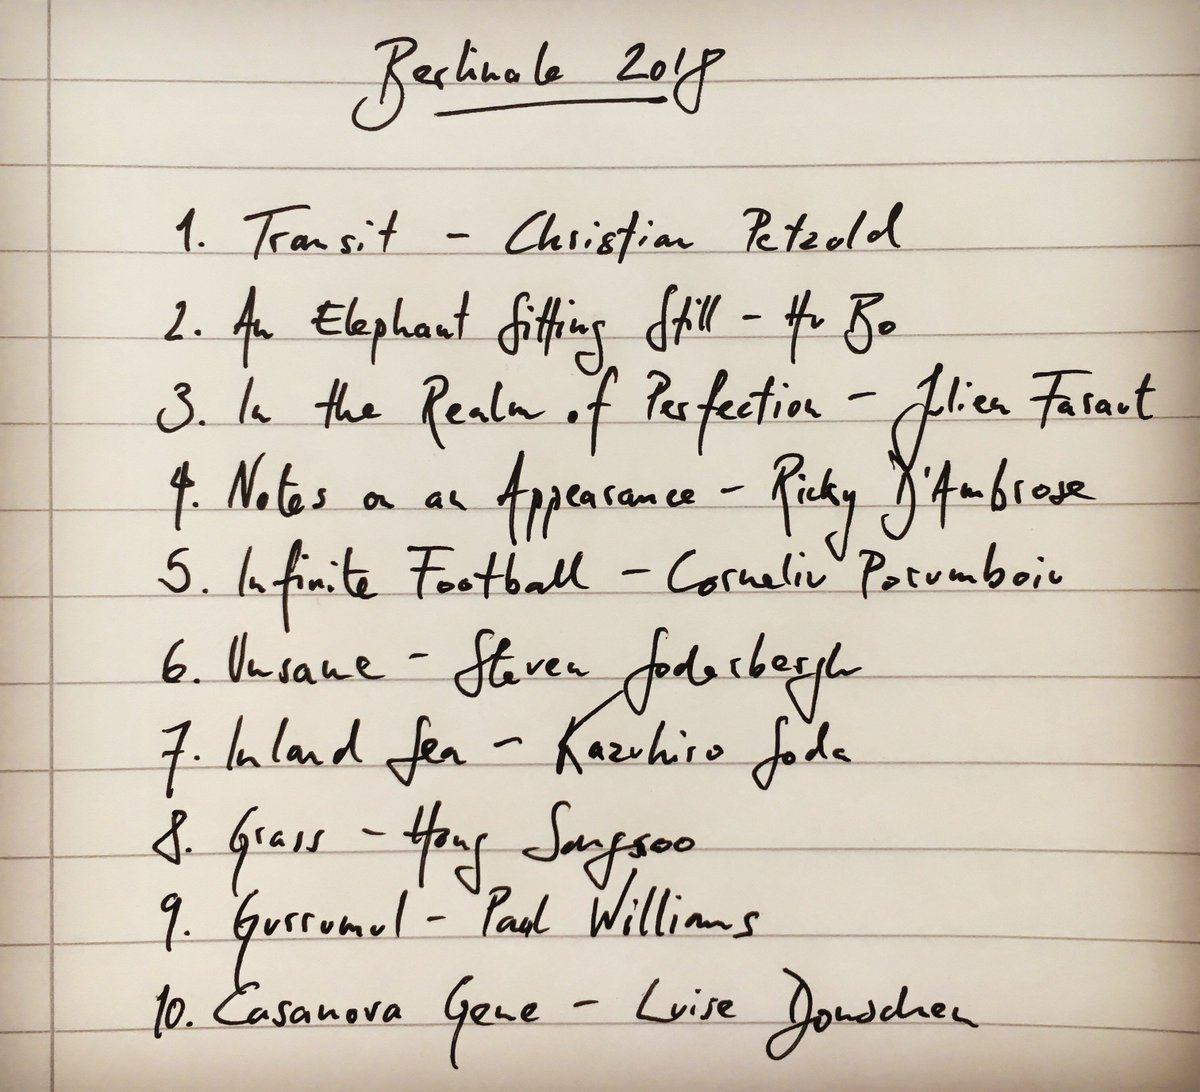 Berlinale 2018
1. Transit - Christian Petzold
2. An Elephant Sitting Still - Hu Bo
3. In the Realm of Perfection - Julien Faraut
4. Notes on an Appearance - Ricky D'Ambrose
5. Infinite Football - Corneliu Porumboiu
6. Unsane - Steven Soderbergh
7. Inland Sea - Kazuhiro Soda
8. Grass - Hong Sangsoo
9. Gurrumul - Paul Williams
10. Casanova Gene - Luise Donschen